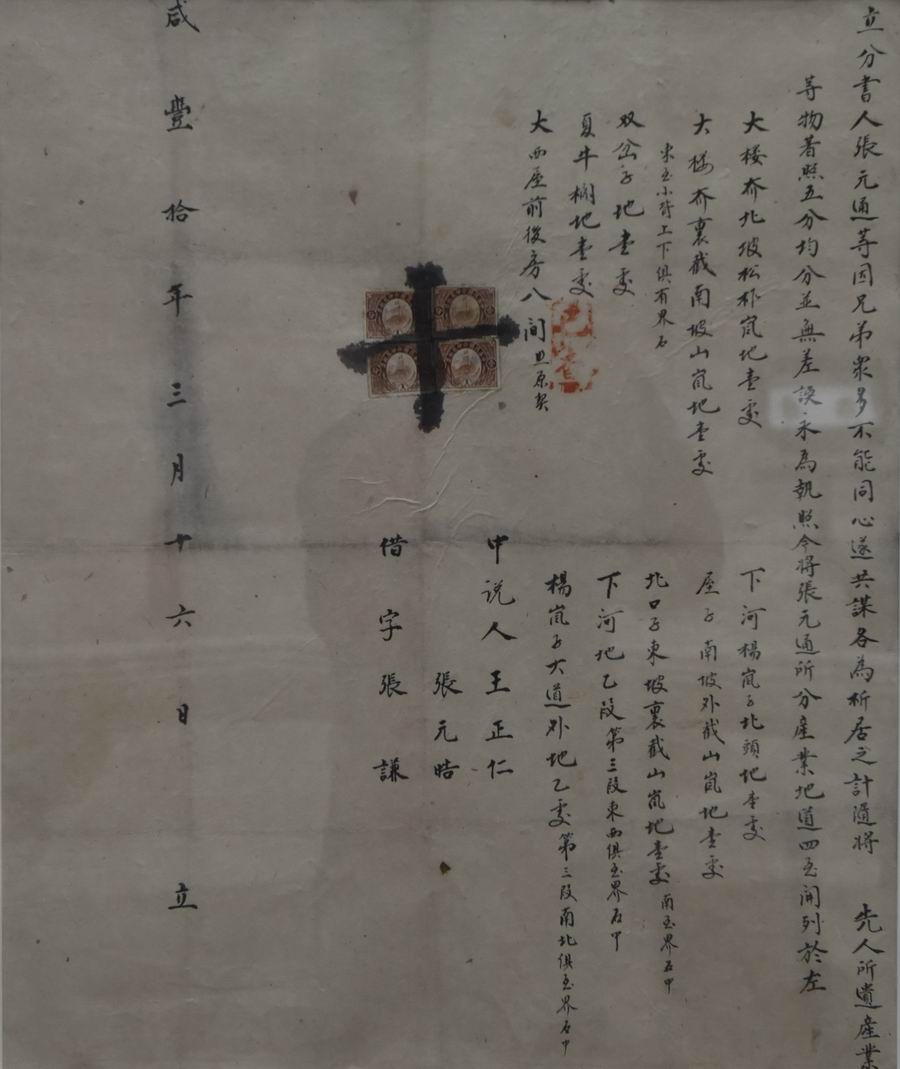 立分書人張元通等因兄弟衆多不能同心遂共謀各為析居之計隨將 先人所遺產業
等物着照五分均分並無差誤永為執照今將張元通所分產業地道四至開列於左
大楼夼北坡松柞嵐地壹处
下河楊嵐子北頭地壹处
大楼夼裏截南坡山嵐地壹处
屋子南坡外截山嵐地壹处
東至小背上下俱有界石
双岔子地壹处
北口子東坡裏截山嵐地壹处南至界石中
夏牛欄地壹处
下河地乙段第三段東西俱至界石中
大西屋前後房八間 原契
楊嵐子大道外地乙处第三段南北俱至界石中
中説人王正仁
張元晧
借字張謙
咸豐拾年三月十六日立